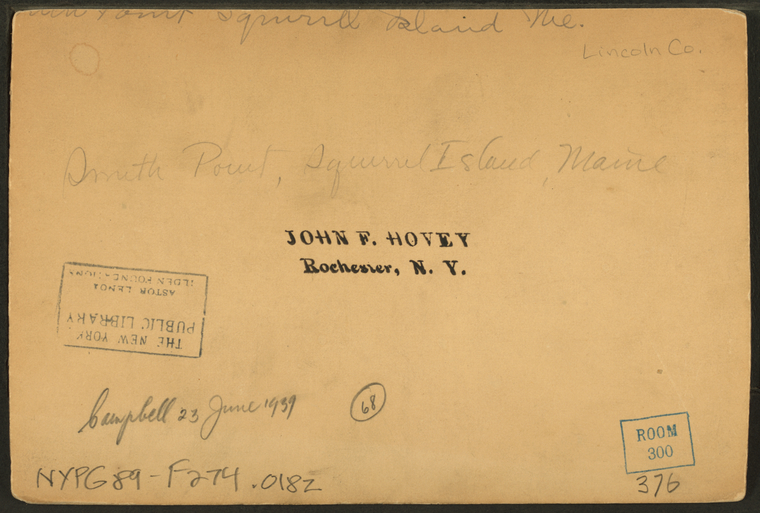 Point Squirrel Island Me.
Lincoln Co.
Smith Point, Squirrel Island, Maine
JOHN F. HOVEY
Rochester, N. Y.
THE NEW YORK
PUBLIC LIBRARY
ASTOR LENOX
TILDEN FOUNDATIONS
Campbell 23 June 1939
68
ROOM
300
376
NYPG89-F274.018z